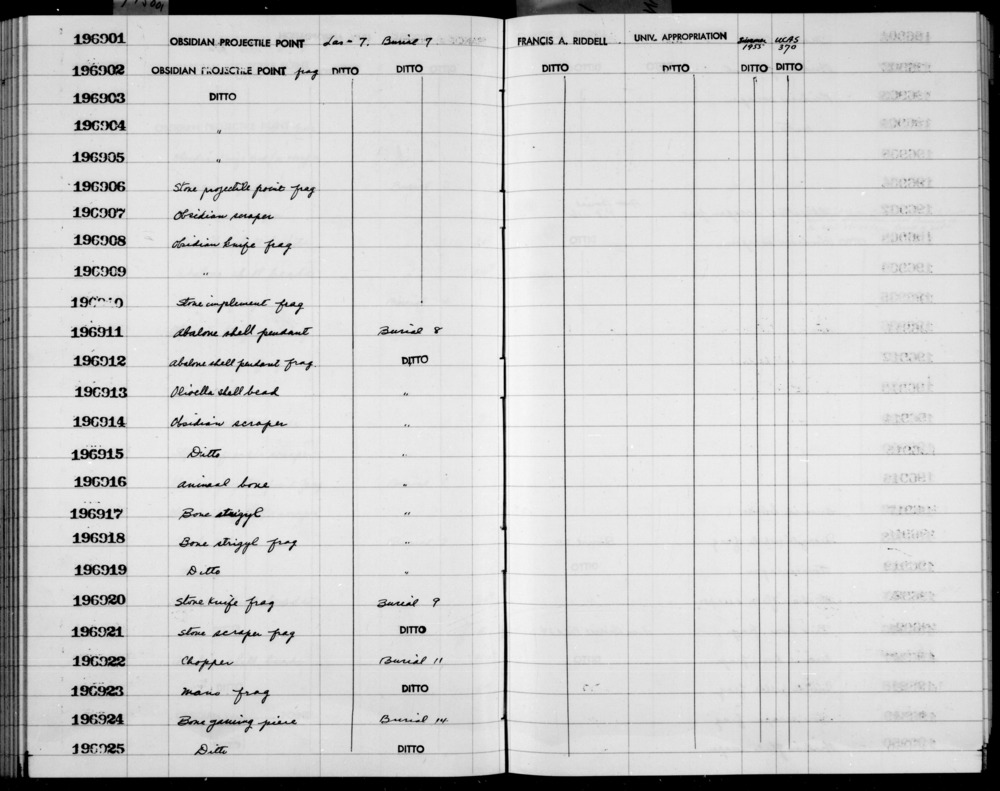 196901 OBSIDIAN PROJECTILE POINT Las-7. Burial 7 FRANCIS A. RIDDELL UNIV. APPROPRIATION Summer 1955 UCAS 370
196902 OBSIDIAN PROJECTILE POINT frag DITTO DITTO DITTO DITTO DITTO DITTO
196903 DITTO
196904 "
196905 "
196906 Stone projectile point frag
196907 Obsidian scraper
196908 Obsidian knife frag
196909 "
196910 Stone implement frag
196911 Abalone shell pendant Burial 8
196912 Abalone shell pendant frag. DITTO
196913 Olivella shell bead "
196914 Obsidian scraper "
196915 Ditto "
196916 Animal bone "
196917 Bone strigyl "
196918 Bone strigyl frag "
196919 Ditto "
196920 Stone knife frag Burial 9
196921 Stone scraper frag DITTO
196922 Chopper Burial 11
196923 Mano frag DITTO
196924 Bone gaming piece Burial 14
196925 Ditto DITTO